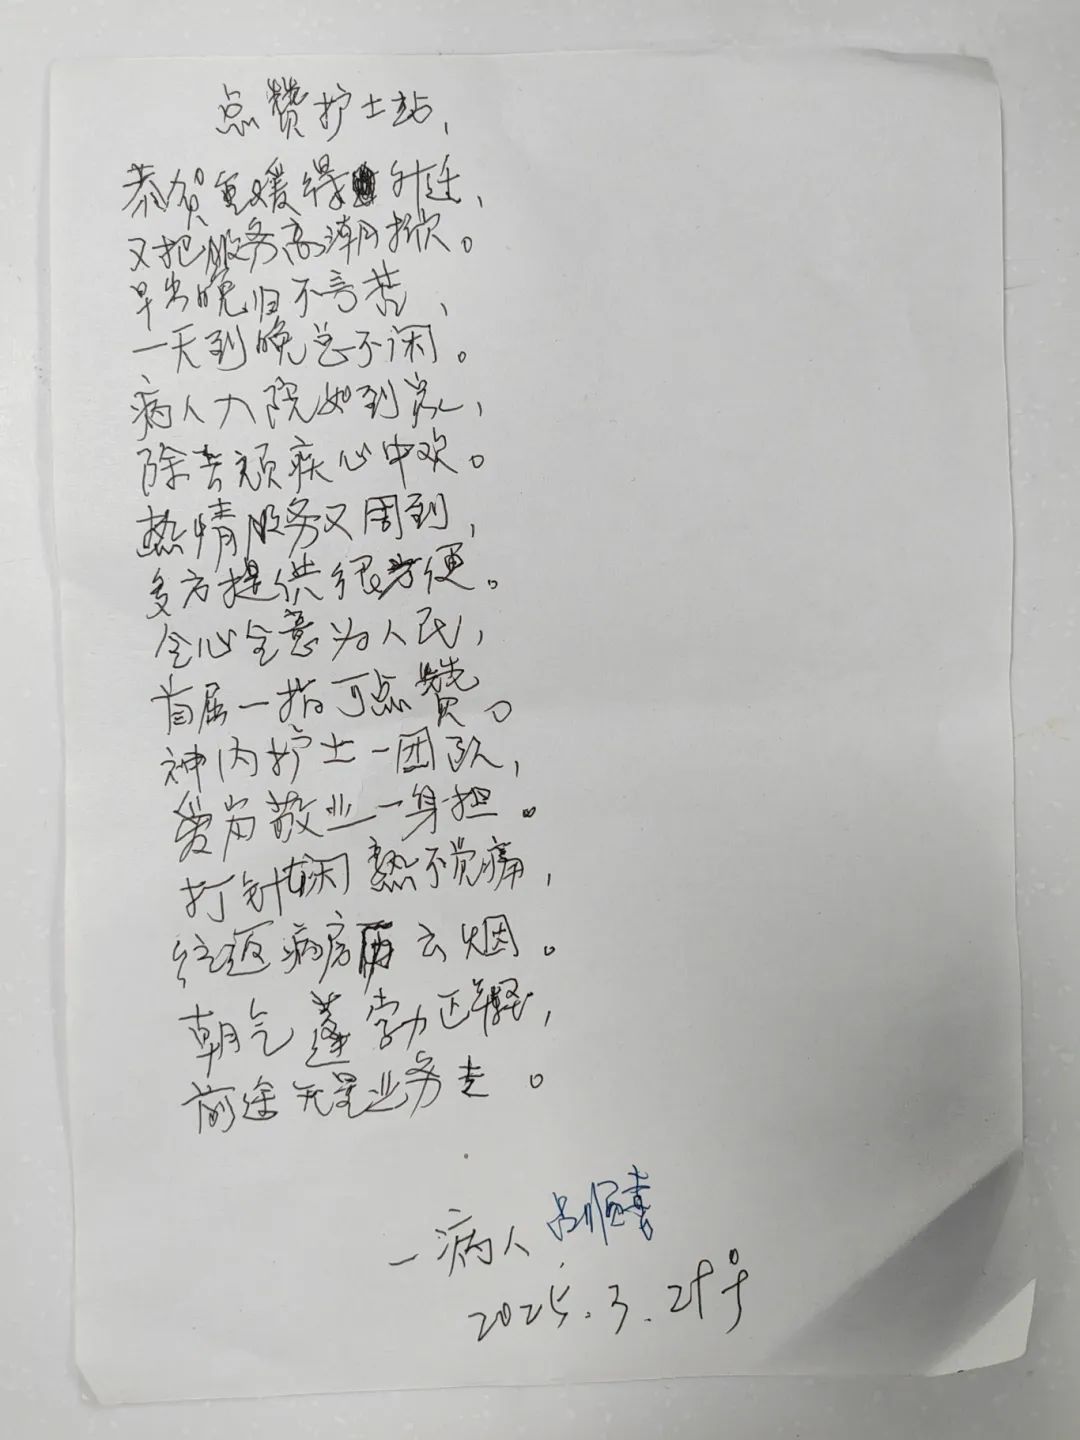 点赞护士站,
恭贺 媛得升迁,
又把服务高潮掀。
早出晚归不言苦,
一天到晚总不闲。
病人入院如到家,
除去顽疾心中欢。
热情服务又周到,
多方提供很方便。
全心全意为人民,
首屈一指可点赞。
神内护士一团队,
爱岗敬业一身担。
打针娴熟不觉痛,
往返病房 云烟。
朝气蓬勃正年轻,
前途无量业务 。
一病人 吕顺喜
2025.3.